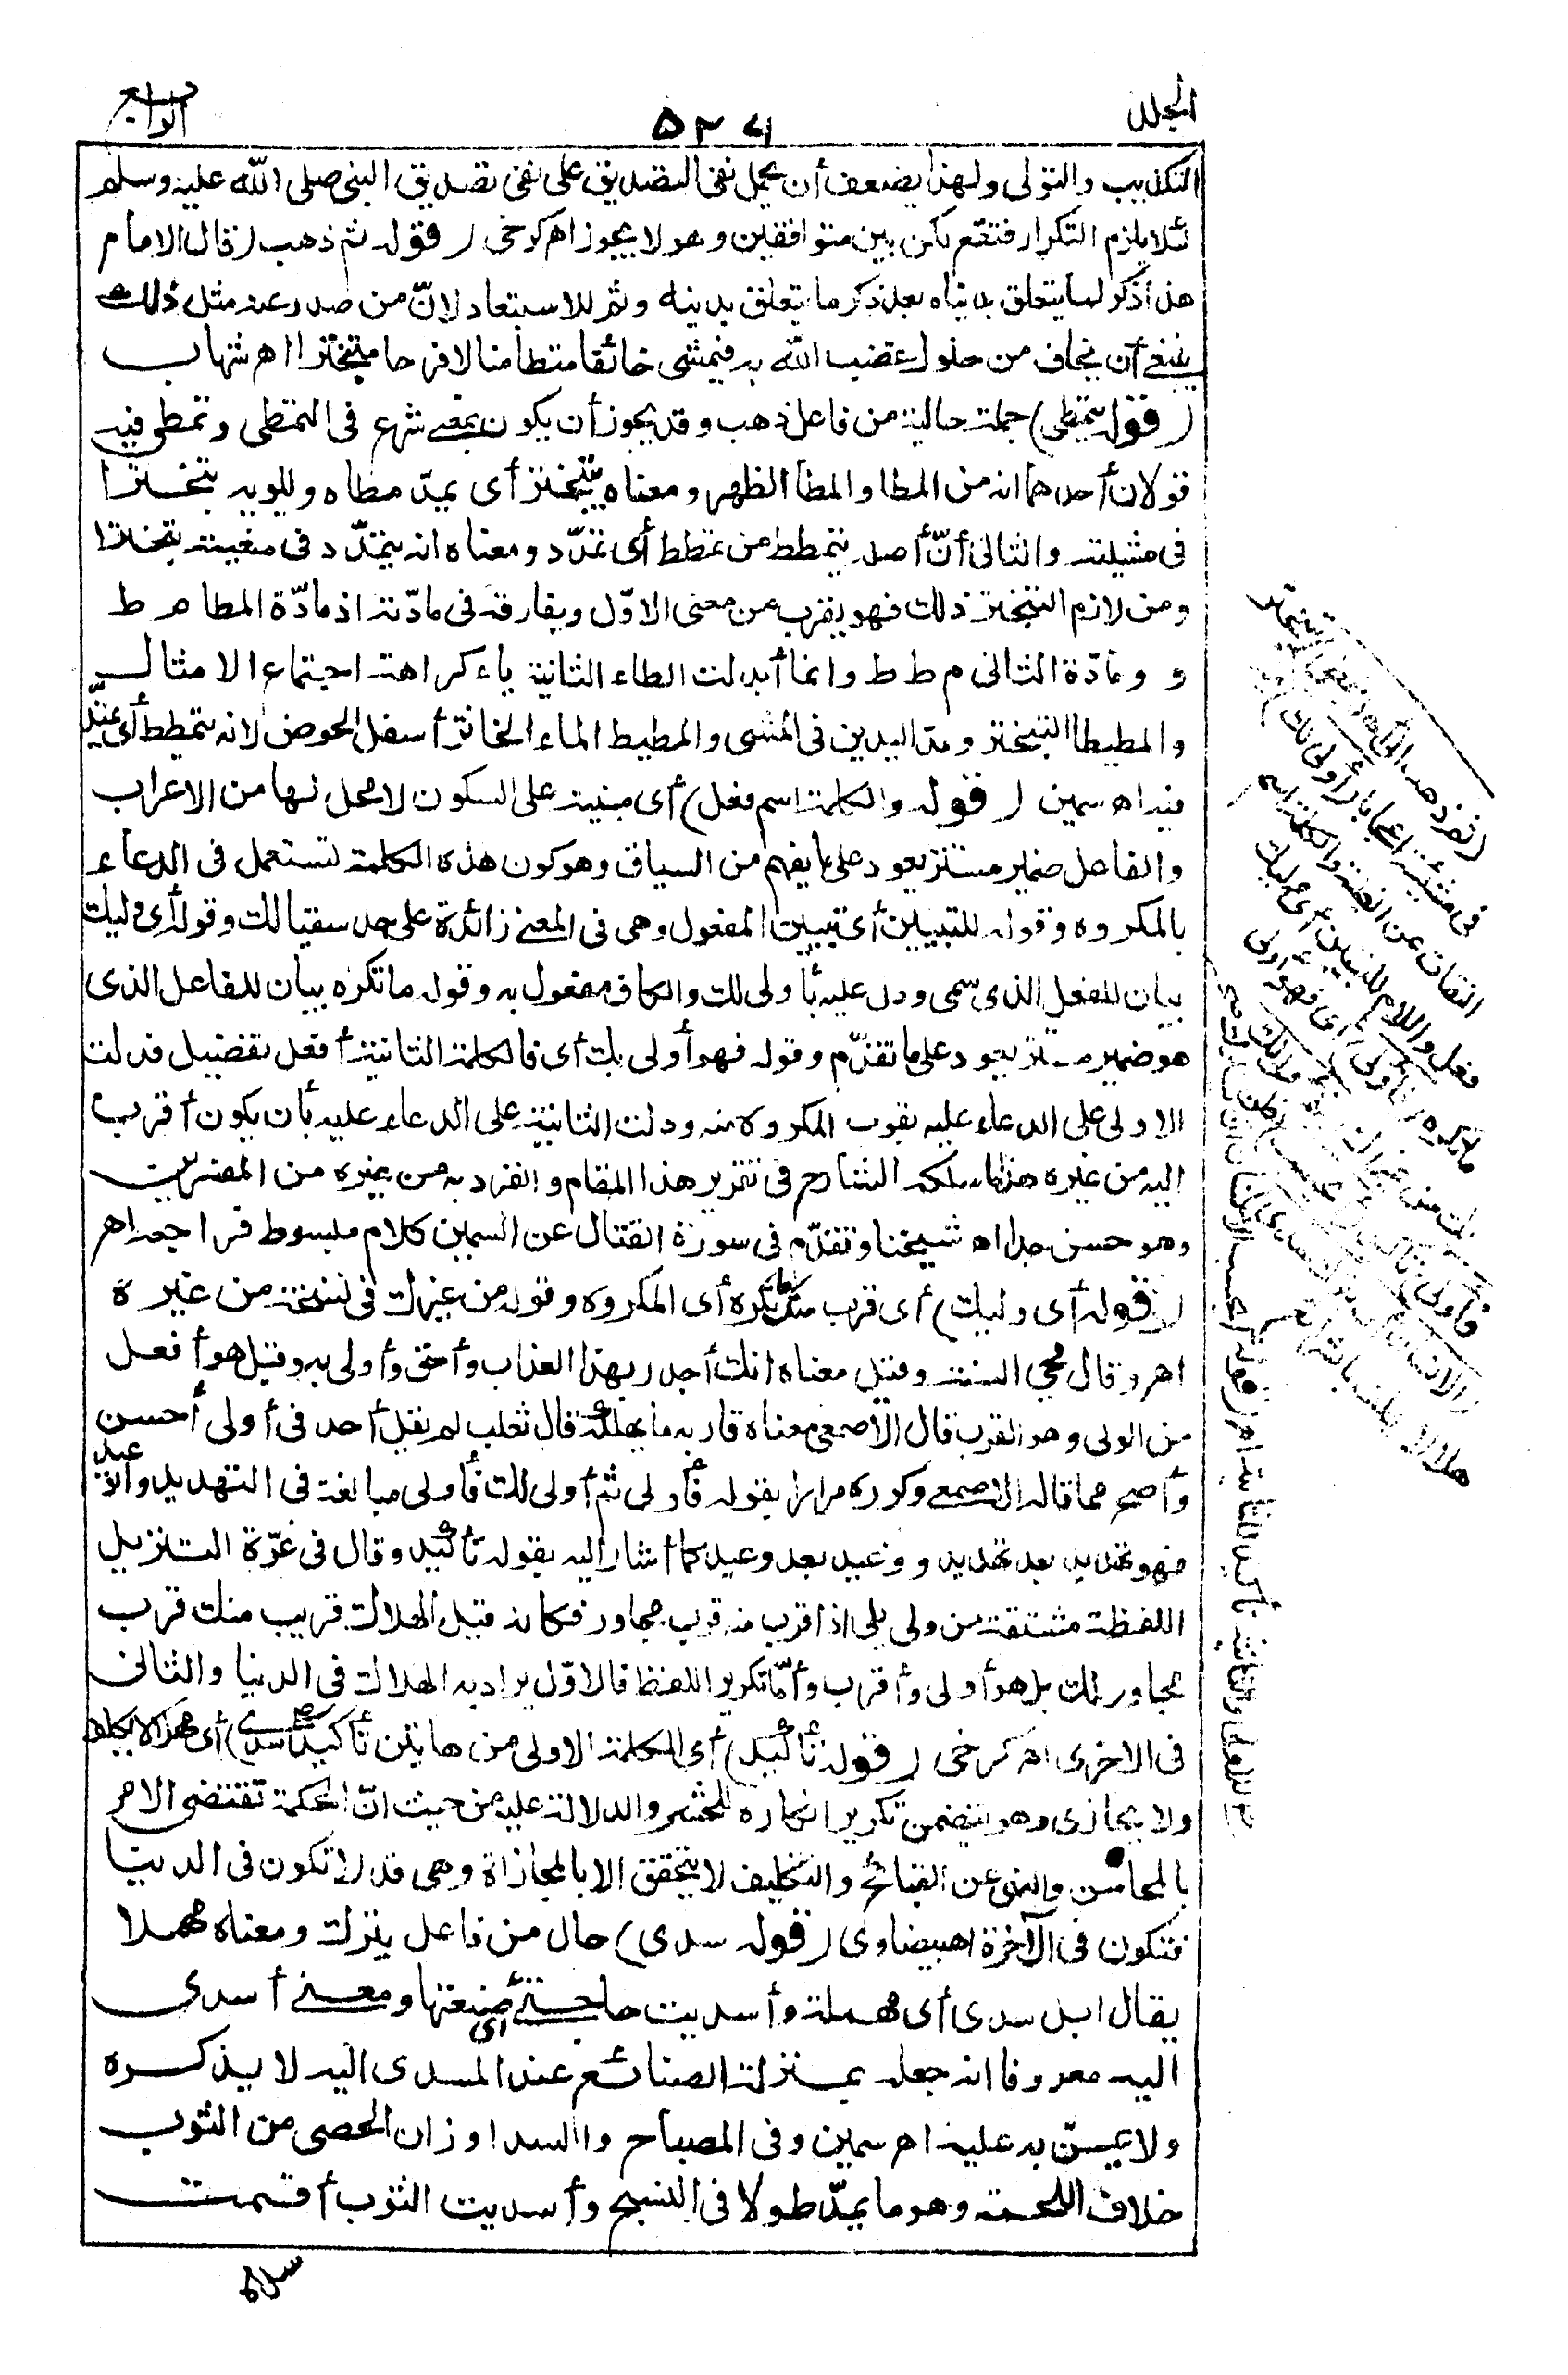 المجلد
٥٢٦
الرابع
التكذيب والتولى ولهذا يضعف أن يحمل نفى التصديق على نفى تصديق النبى صلى الله عليه وسلم
لئلا يلزم التكرار فتقع لكن بين متوافقين وهو لا يجوز اه كرخى (قوله ثم ذهب) قال الامام
هذا ذكر لما يتعلق بدنياه بعد ذكر ما يتعلق بدينه وثم للاستبعاد لانّ من صدر عنه مثل ذلك
ينبغى أن يخاف من حلول غضب الله به فيمشى خائفا متطامنا لا فرحا متبخترا اه شهاب
(قوله يتمطى) جملة حالية من فاعل ذهب وقد يجوز أن يكون بمعنى شرع فى التمطى وتمطى فيه
قولان أحدهما انه من المطا والمطا الظهر ومعناه يتبختر أى يمدّ مطاه ويلويه تبخترا
فى مشيته والثانى أنّ أصله يتمطط من تمطط أى تمدّد ومعناه انه يتمدّد فى مشيته تبخترا
ومن لازم التبختر ذلك فهو يقرب من معنى الاوّل ويفارقه فى مادّته اذ مادّة المطا م ط
و ومادّة الثانى م ط ط وانما أبدلت الطاء الثانية ياء كراهة اجتماع الامثال
والمطيطا التبختر ومد اليدين فى المشى والمطيط الماء الخاثر أسفل الحوض لانه يتمطط أى يمتدّ
فيه اه سمين (قوله والكلمة اسم فعل) أى مبنية على السكون لا محل لها من الاعراب
والفاعل ضمير مستتر يعود على ما يفهم من السياق وهو كون هذه الكلمة تستعمل فى الدعاء
بالمكروه وقوله للتبيين أى تبيين المفعول وهى فى المعنى زائدة على حد سقيا لك وقوله أى وليك
بيان للفعل الذى سمى ودل عليه بأولى لك والكاف مفعول به وقوله ما تكره بيان للفاعل الذى
هو ضمير مستتر يعود على ما تقدّم وقوله فهو أولى بك أى فالكلمة الثانية أفعل تفضيل فدلت
الاولى على الدعاء عليه بقرب المكروه منه ودلت الثانية على الدعاء عليه بأن يكون أقرب
اليه من غيره هذا ما سلكه الشارح فى تقرير هذا المقام وانفرد به من غيره من المفسرين
وهو حسن جدا اه شيخنا وتقدّم فى سورة القتال عن السمين كلام مبسوط فراجعه اه
(قوله أى وليك) أى قرب منك ما تكره أى المكروه وقوله من غيرك فى نسخة من غيره
اه وقال محي السنة وقيل معناه انك أجدر بهذا العذاب وأحق وأولى به وقيل هو أفعل
من الولى وهو القرب قال الاصمعى معناه قاربه ما يهلكه قال ثعلب لم يقل أحد فى أولى أحسن
وأصح مما قاله الاصمعى وكرره مرارا بقوله فأولى ثم أولى لك فأولى مبالغة فى التهديد والوعيد
فهو تهديد بعد تهديد ووعيد بعد وعيد كما أشار اليه بقوله تأكيد وقال فى غرّة التنزيل
اللفظة مشتقة من ولى يلى اذا قرب منه قرب مجاور فكانه قيل الهلاك قريب منك قرب
مجاور لك بل هو أولى وأقرب وأمّا تكرير اللفظ فالاوّل يراد به الهلاك فى الدنيا والثانى
فى الاخرى اه كرخى (قوله تأكيد) أى الكلمة الاولى من هاتين تأكيد (سدى) أى هملا لا يكلف
ولا يجازى وهو يتضمن تكرير انكاره للحشر والدلالة عليه من حيث انّ الحكمة تقتضى الامر
بالمحاسن والنهى عن القبائح والتكليف لا يتحقق الا بالمجازاة وهى قد لا تكون فى الدنيا
فتكون فى الآخرة اه بيضاوى (قوله سدى) حال من فاعل يترك ومعناه مهملا
يقال ابل سدى أى مهملة وأسديت حاجتى أى ضيعتها ومعنى أسدى
اليه معروفا انه جعله بمنزلة الضائع عند المسدى اليه لا يذكره
ولا يمنّ به عليه اه سمين وفى المصباح والسدا وزان الحصى من الثوب
خلاف اللحمة وهو ما يمدّ طولا فى النسج وأسديت الثوب أقمت
سداه
فى مشيته اعجابا (أولى لك)
التفات عن الغيبة والكلمة اسم
فعل واللام للتبيين أى وليك
ما تكره (فأولى) أى فهو أولى
بك من غيرك